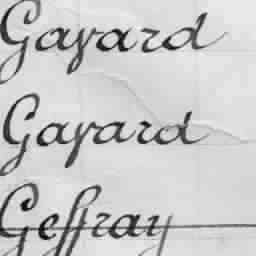 Gayard
Gayard
Geffray